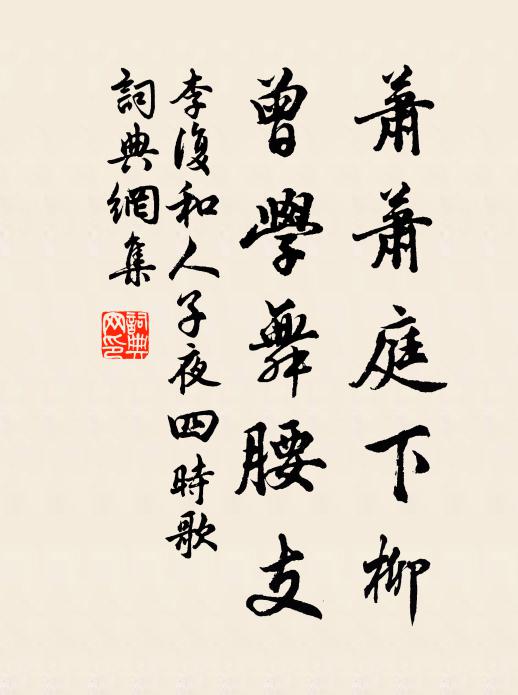 蕭蕭庭下柳
曾學舞腰支
李復和人子夜四時歌
詞典網集
詞典
网印